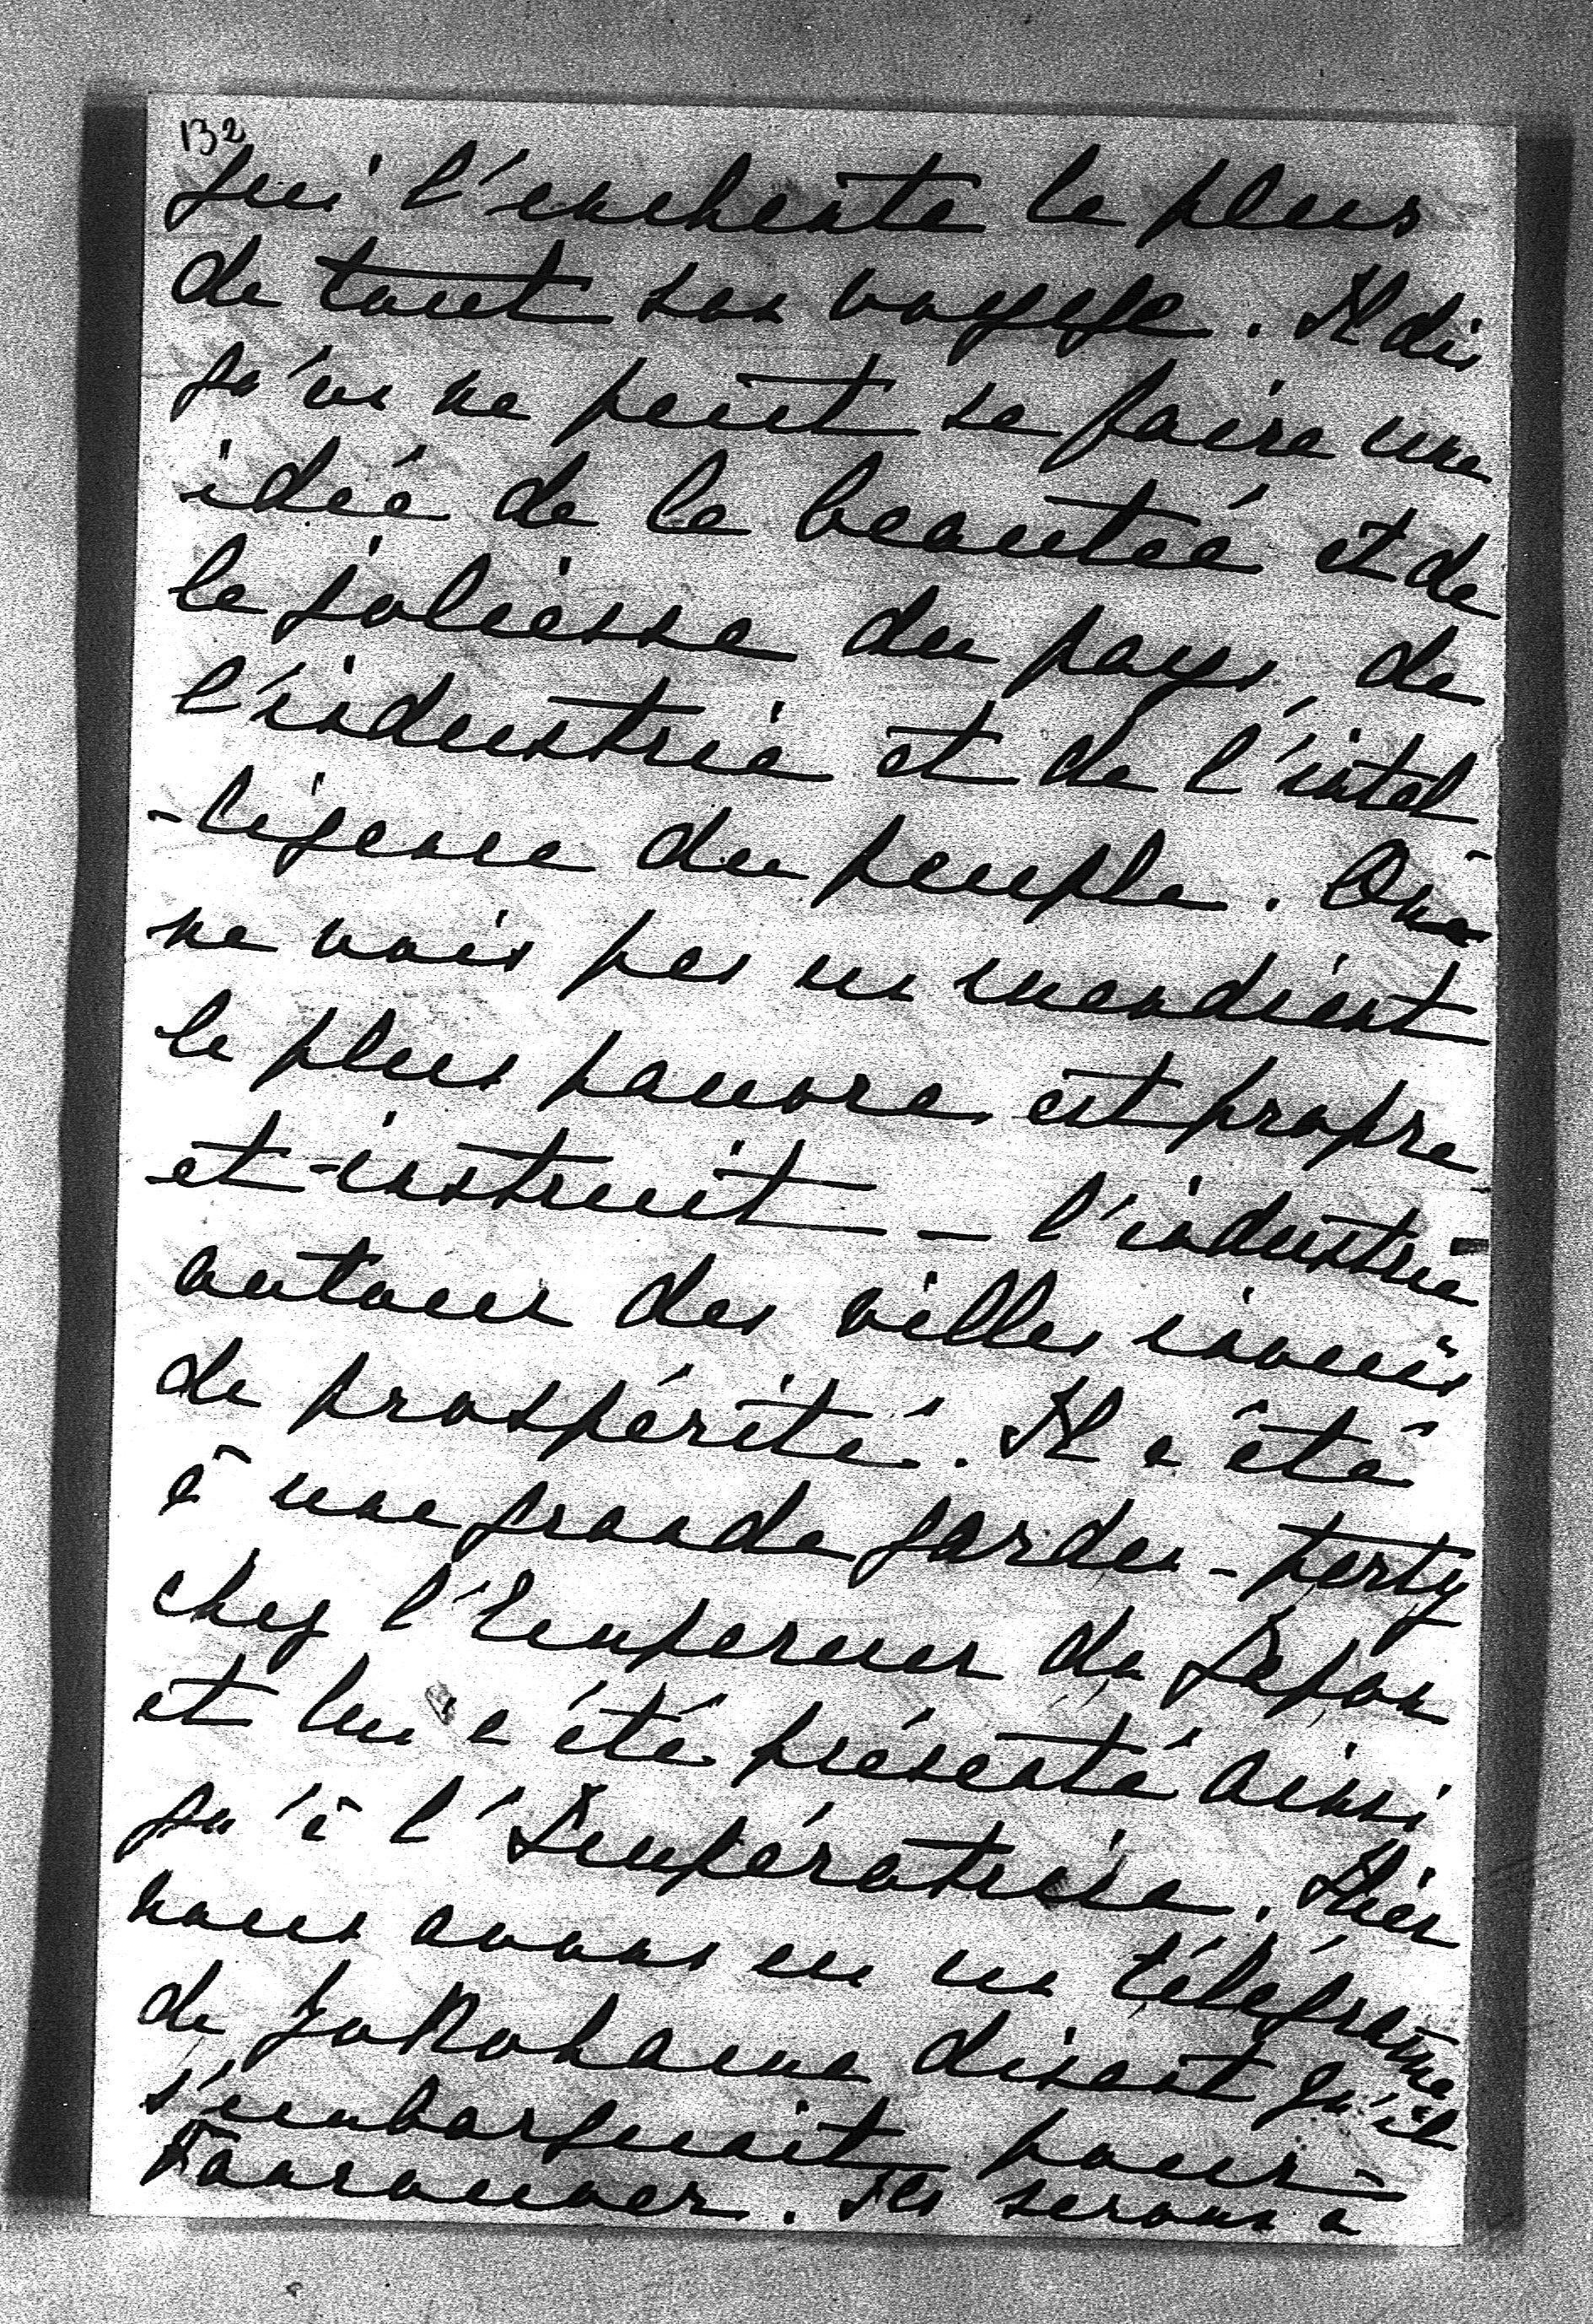 132
qui l'enchente le plus
de tout son voyage. Il dis
qu'on ne peut se faire une
idée de la beautée et de
la joliesse du pays, de
l'industrie et de l'intel
-ligence du peuple. On
ne vois pas un mendient
le plus pauvre est propre
et instruit - l'industrie
autour des villes inouis
de prospérité. Il a été
à une grande garden-party
chez l'Empereur du Japon
et lui a été présenté ainsi
qu'à l'Impératrice. Hier
nous avons eu un télégramme
de Jokohama disant qu'il
s'embarquait pour
Vancouver. Ils serons a